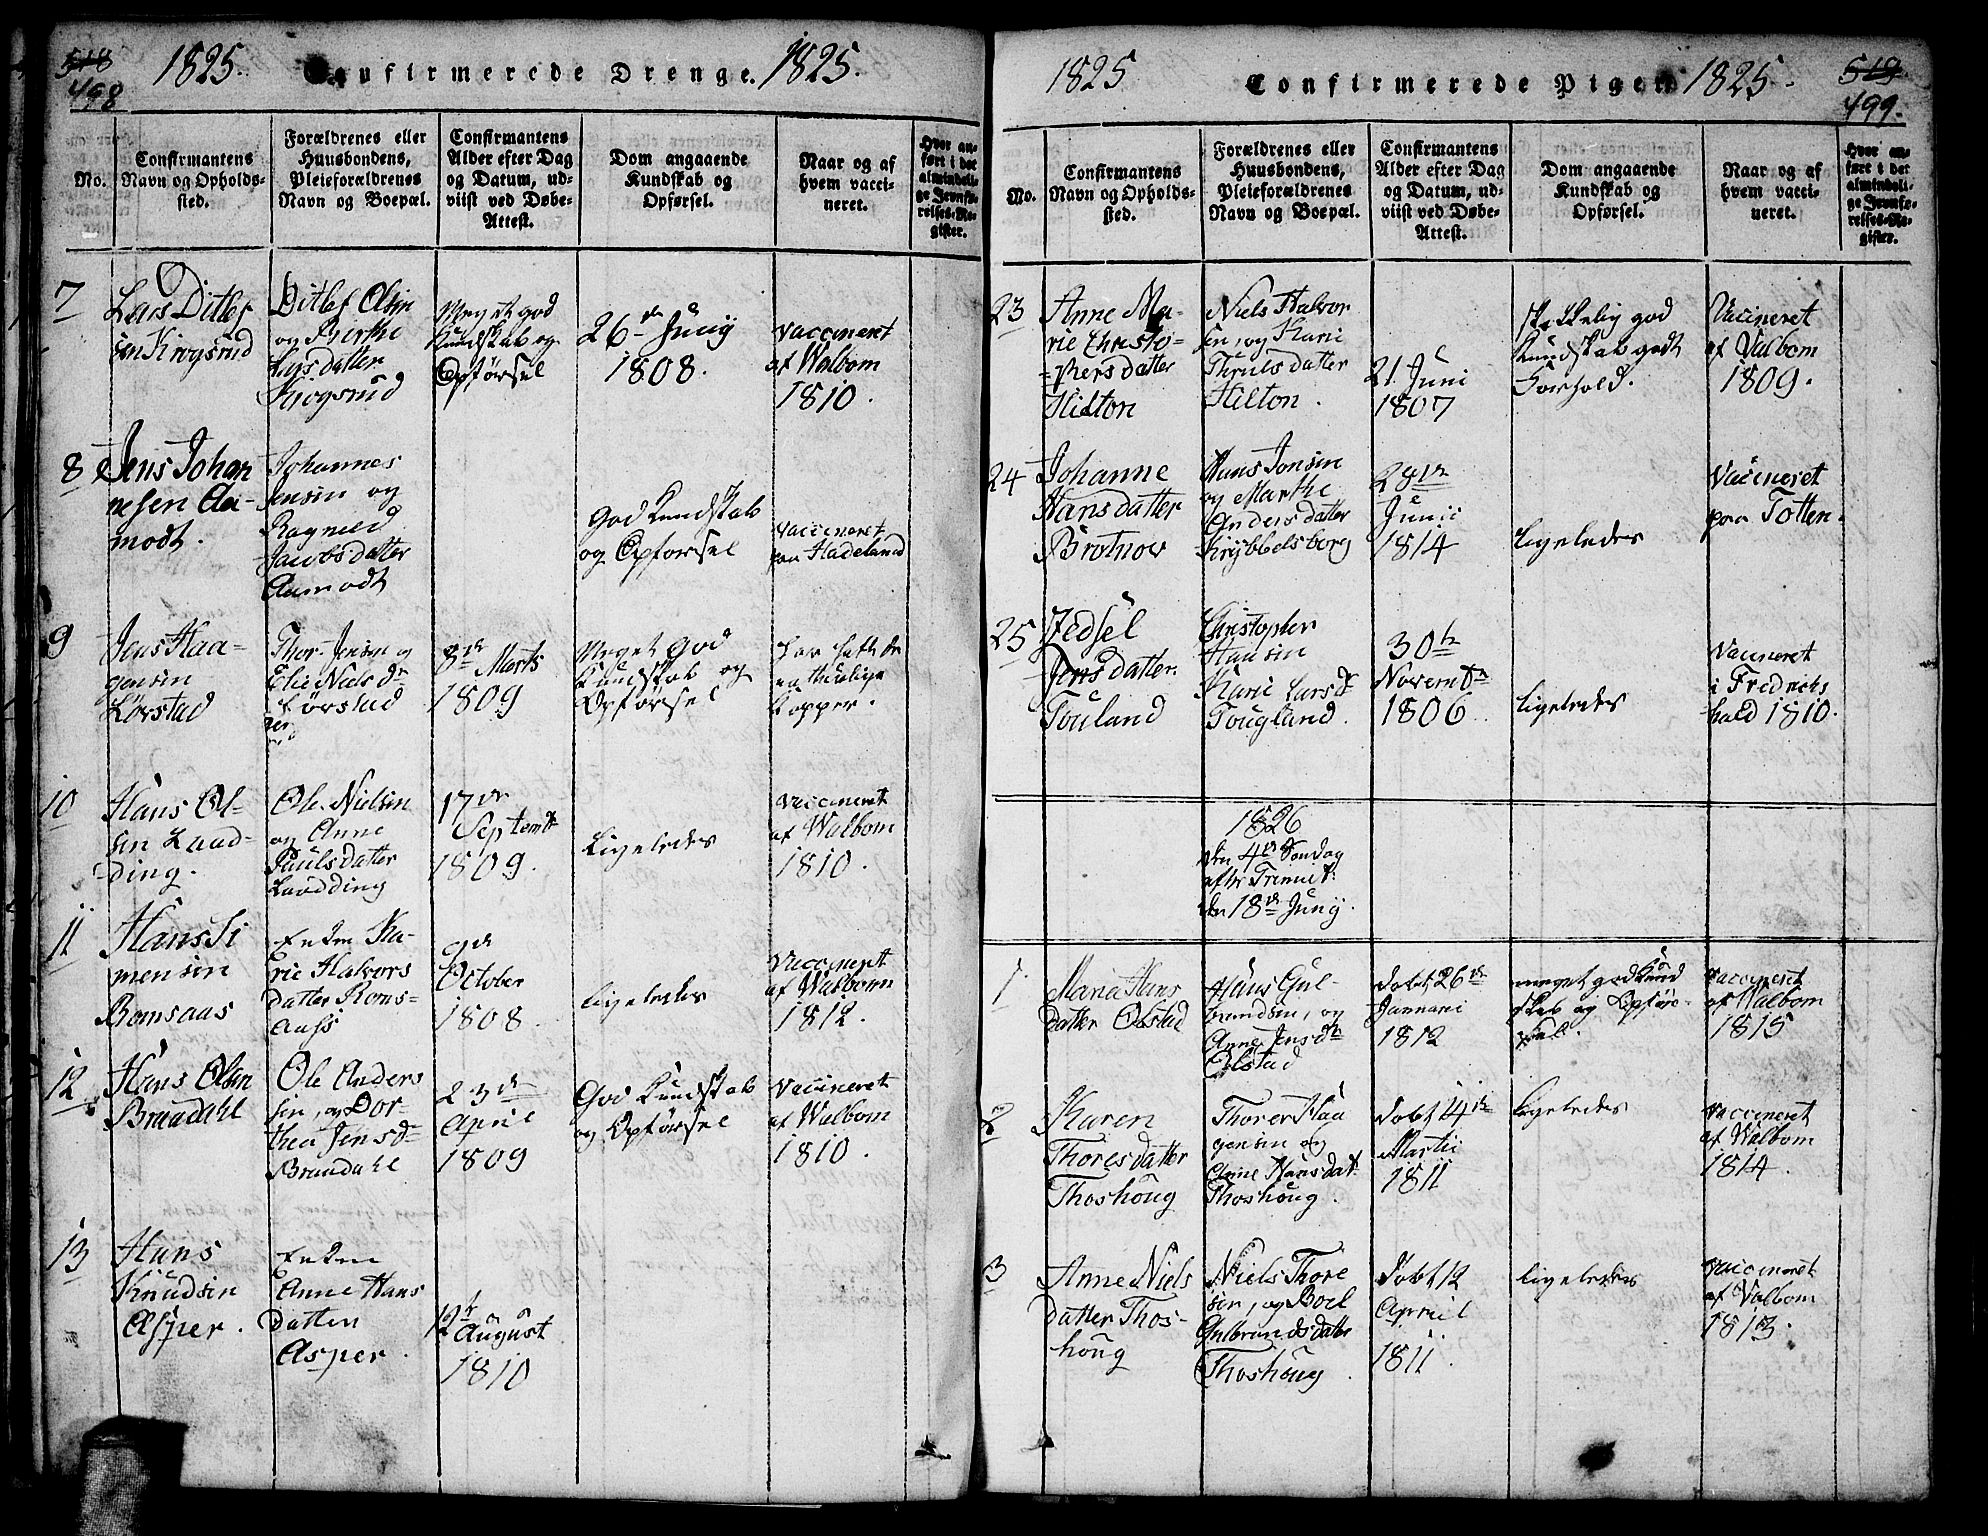 518
498
1825.
Confirmerede Drenge.
1825.
No.
Confirmantens
Navn og Opholds-
sted.
Forældrenes eller
Huusbondens,
Pleieforældrenes
Navn og Boepæl.
Confirmantens
Alder efter Dag
og Datum, ud-
viist ved Døbe-
Attest.
Dom angaaende
Kundskab og
Opførsel.
Naar og af
hvem vacci-
neret.
Hvor an-
ført i det
almindeli-
ge Jevnfø-
relses-Re-
gister.
7
Lars Ditlef
sen Krogsrud
Ditlef Olsen
og Berthe
Larsdatter
Krogsrud
Meget god
Kundskab og
Opførsel
26de Junij
1808.
vaccineret
af Walbom
1810.
8
Jens Johan
nesen Aa-
modt.
Johannes
Jensen og
Ragnild
Jacobsdatter
Aamodt
God Kundskab
og Opførsel
vaccineret
paa Hadeland
9
Jens Haa-
gensen
Lørstad
Thor Jensen og
Elie Nielsdr
Lørstad
8de Marts
1809
Meget God
Kundskab og
Opførsel
har havt de
naturlige
kopper.
10
Hans Ol-
sen Laud-
ding.
Ole Nielsen
og Anne
Paulsdatter
Laudding
17de
Septembr
1809.
Ligeledes
vaccineret
af Walbom
1810.
11
Hans Si
mensen
Romsaas
Enken Ka-
rie Halvors
datter Roms-
aass
9de
October
1808.
ligeledes
vaccineret
af Walbom
1812.
12
Hans Olsen
Braadahl
Ole Anders
sen, og Dor-
thea Jensdr
Braadahl
23de
April
1809
God Kundskab
og Opførsel
vaccineret
af Walbom
1810.
13
Hans
Knudsen
Asper.
Enken
Anne Hans
datter
Asper.
12te August
1810
1825
Confirmerede Piger
1825.
519
499.
No.
Confirmantens
Navn og Opholds-
sted.
Forældrenes eller
Huusbondens,
Pleieforældrenes
Navn og Boepæl.
Confirmantens
Alder efter Dag
og Datum, ud-
viist ved Døbe-
Attest.
Dom angaaende
Kundskab og
Opførsel.
Naar og af
hvem vacci-
neret.
Hvor an-
ført i det
almindeli-
ge Jevnfø-
relses-Re-
gister.
23
Anne Ma-
rie Christo-
phersdatter
Hilton
Niels Halvor
sen, og Kari
Thrulsdatter
Hilton.
21. Juni
1807
skikkelig god
Kundskab godt
Forhold.
Vaccineret
af Valbom
1809.
24
Johanne
Hansdatter
Brotnov
Hans Jonsen
og Marthe
Andersdatter
Krybbelsborg
28de
Junii
1814
ligeledes
Vaccineret
paa Totten.
25
Zedsel
Jensdatter
Touland
Christopher
Hansen
Kari Larsdr
Tougland.
30te
Novembr
1806.
ligeledes
Vaccineret
i Fredrichs
hald 1810.
1826
den 4de Søndag
efter Trinnit:
den 18de Junij.
1
Maria Hans
datter Olstad
Hans Gul-
brandsen, og
Anne Jensdr
Olstad
døbt 26de
Januari
1812
meget god Kund
skab og Opfør-
sel.
vaccineret
af Walbom
1815
2
Karen
Thoresdatter
Thoshoug
Thorer Haa
gensen og
Anne Hansdat
Thoshoug.
døbt 4de
Martii
1811
ligeledes
vaccineret
af Walbom
1814.
3
Anne Niels
datter Thos-
houg
Niels Thore
sen, og Boel
Gulbrandsdatter
Thoshoug.
døbt 12
April
1811.
ligeledes
vaccineret
af Valbom
1813.